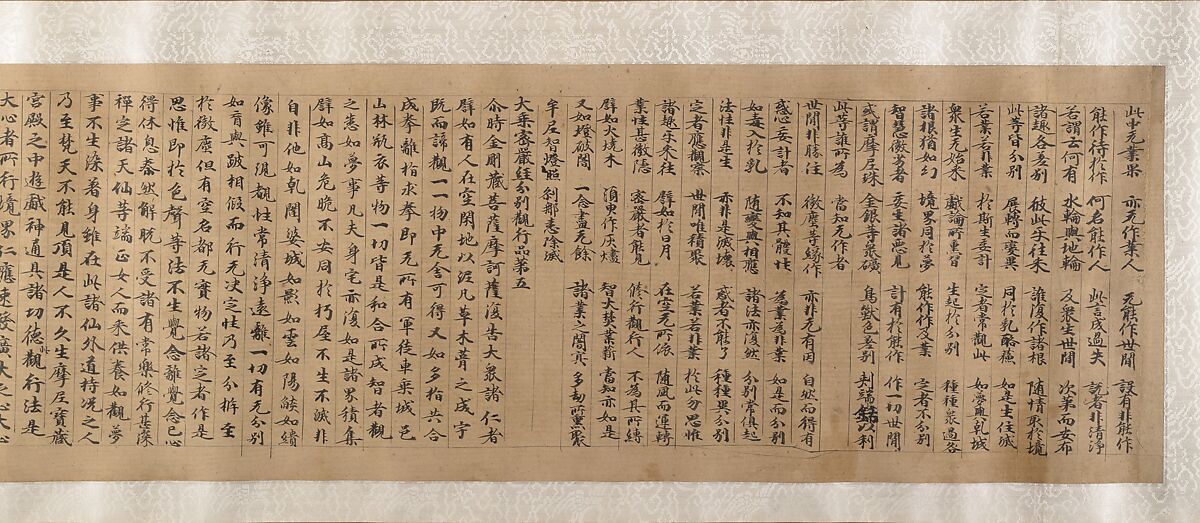 此中无業果 亦无作業人 无能作世間 設有非能作
能作待於作 何名能作人 此言成過失 説者非清淨
若謂去何有 水輪與地輪 及衆生世間 次第而安布
諸趣各差別 彼此乎往来 誰復作諸根 隨情取於境
此等皆分別 展轉而變異 同於乳酪蘓 如是生住滅
若業若非業 於斯生妄計 定者常觀此 如夢與乹城
衆生无始来 戯論所熏習 生起於分別 種種衆過咎
諸根猶如幻 境界同於夢 能作所作業 定者不分別
智慧微劣者 妄生諸惡見 計有於能作 作一切世間
或謂摩尼珠 金銀等衆礦 鳥獸色差別 刺端銛以利
此等誰所為 當知无作者
世間非勝性 微塵等緣作 亦非无有因 自然而得有
惑心妄計者 不知其體性 為業為非業 如是而分別
如毒入於乳 隨變與相應 諸法亦復然 分別常俱起
法性非是生 亦非是滅壞 惑者不能了 種種異分別
定者應觀察 世間唯積聚 若業若非業 於此勿思惟
諸趣乎来往 譬如於日月 在空无所依 隨風而運轉
業性甚微隱 密嚴者能見 修行觀行人 不為其所縛
譬如火燒木 須臾作灰燼 智火焚業薪 當知亦如是
又如燈破闇 一念盡无餘 諸業之闇冥 多劫所熏聚
牟尼智燈照 刹那悉除滅
大乘密嚴經分別觀行品第五
尒時金剛藏菩薩摩訶薩復告大衆諸仁者
譬如有人在空閑地以埿瓦草木葺之成宇
既而諦觀一一物中无舍可得又如多指共合
成拳離指求拳即无所有軍徒車乘城邑
山林瓶衣等物一切皆是和合所成智者觀
之悉如夢事凡夫身宅亦復如是諸界積集
譬如高山危脆不安同於朽屋不生不滅非
自非他如乹闥婆城如影如雲如陽燄如繢
像雖可現觀性常清淨遠離一切有无分別
如盲與跛相假而行无決定性乃至分析至
於微塵但有空名都无實物若諸定者作是
思惟即於色聲等法不生覺念離覺念已心
得休息泰然解脫不受諸有常樂修行甚深
禪定諸天仙等端正女人而来供養如觀夢
事不生染著身雖在此諸仙外道持呪之人
乃至梵天不能見頂是人不久生摩尼寶藏
宮殿之中遊戲神通具諸切德此觀行法是
大心者所行境界仁應速發廣大之心大心